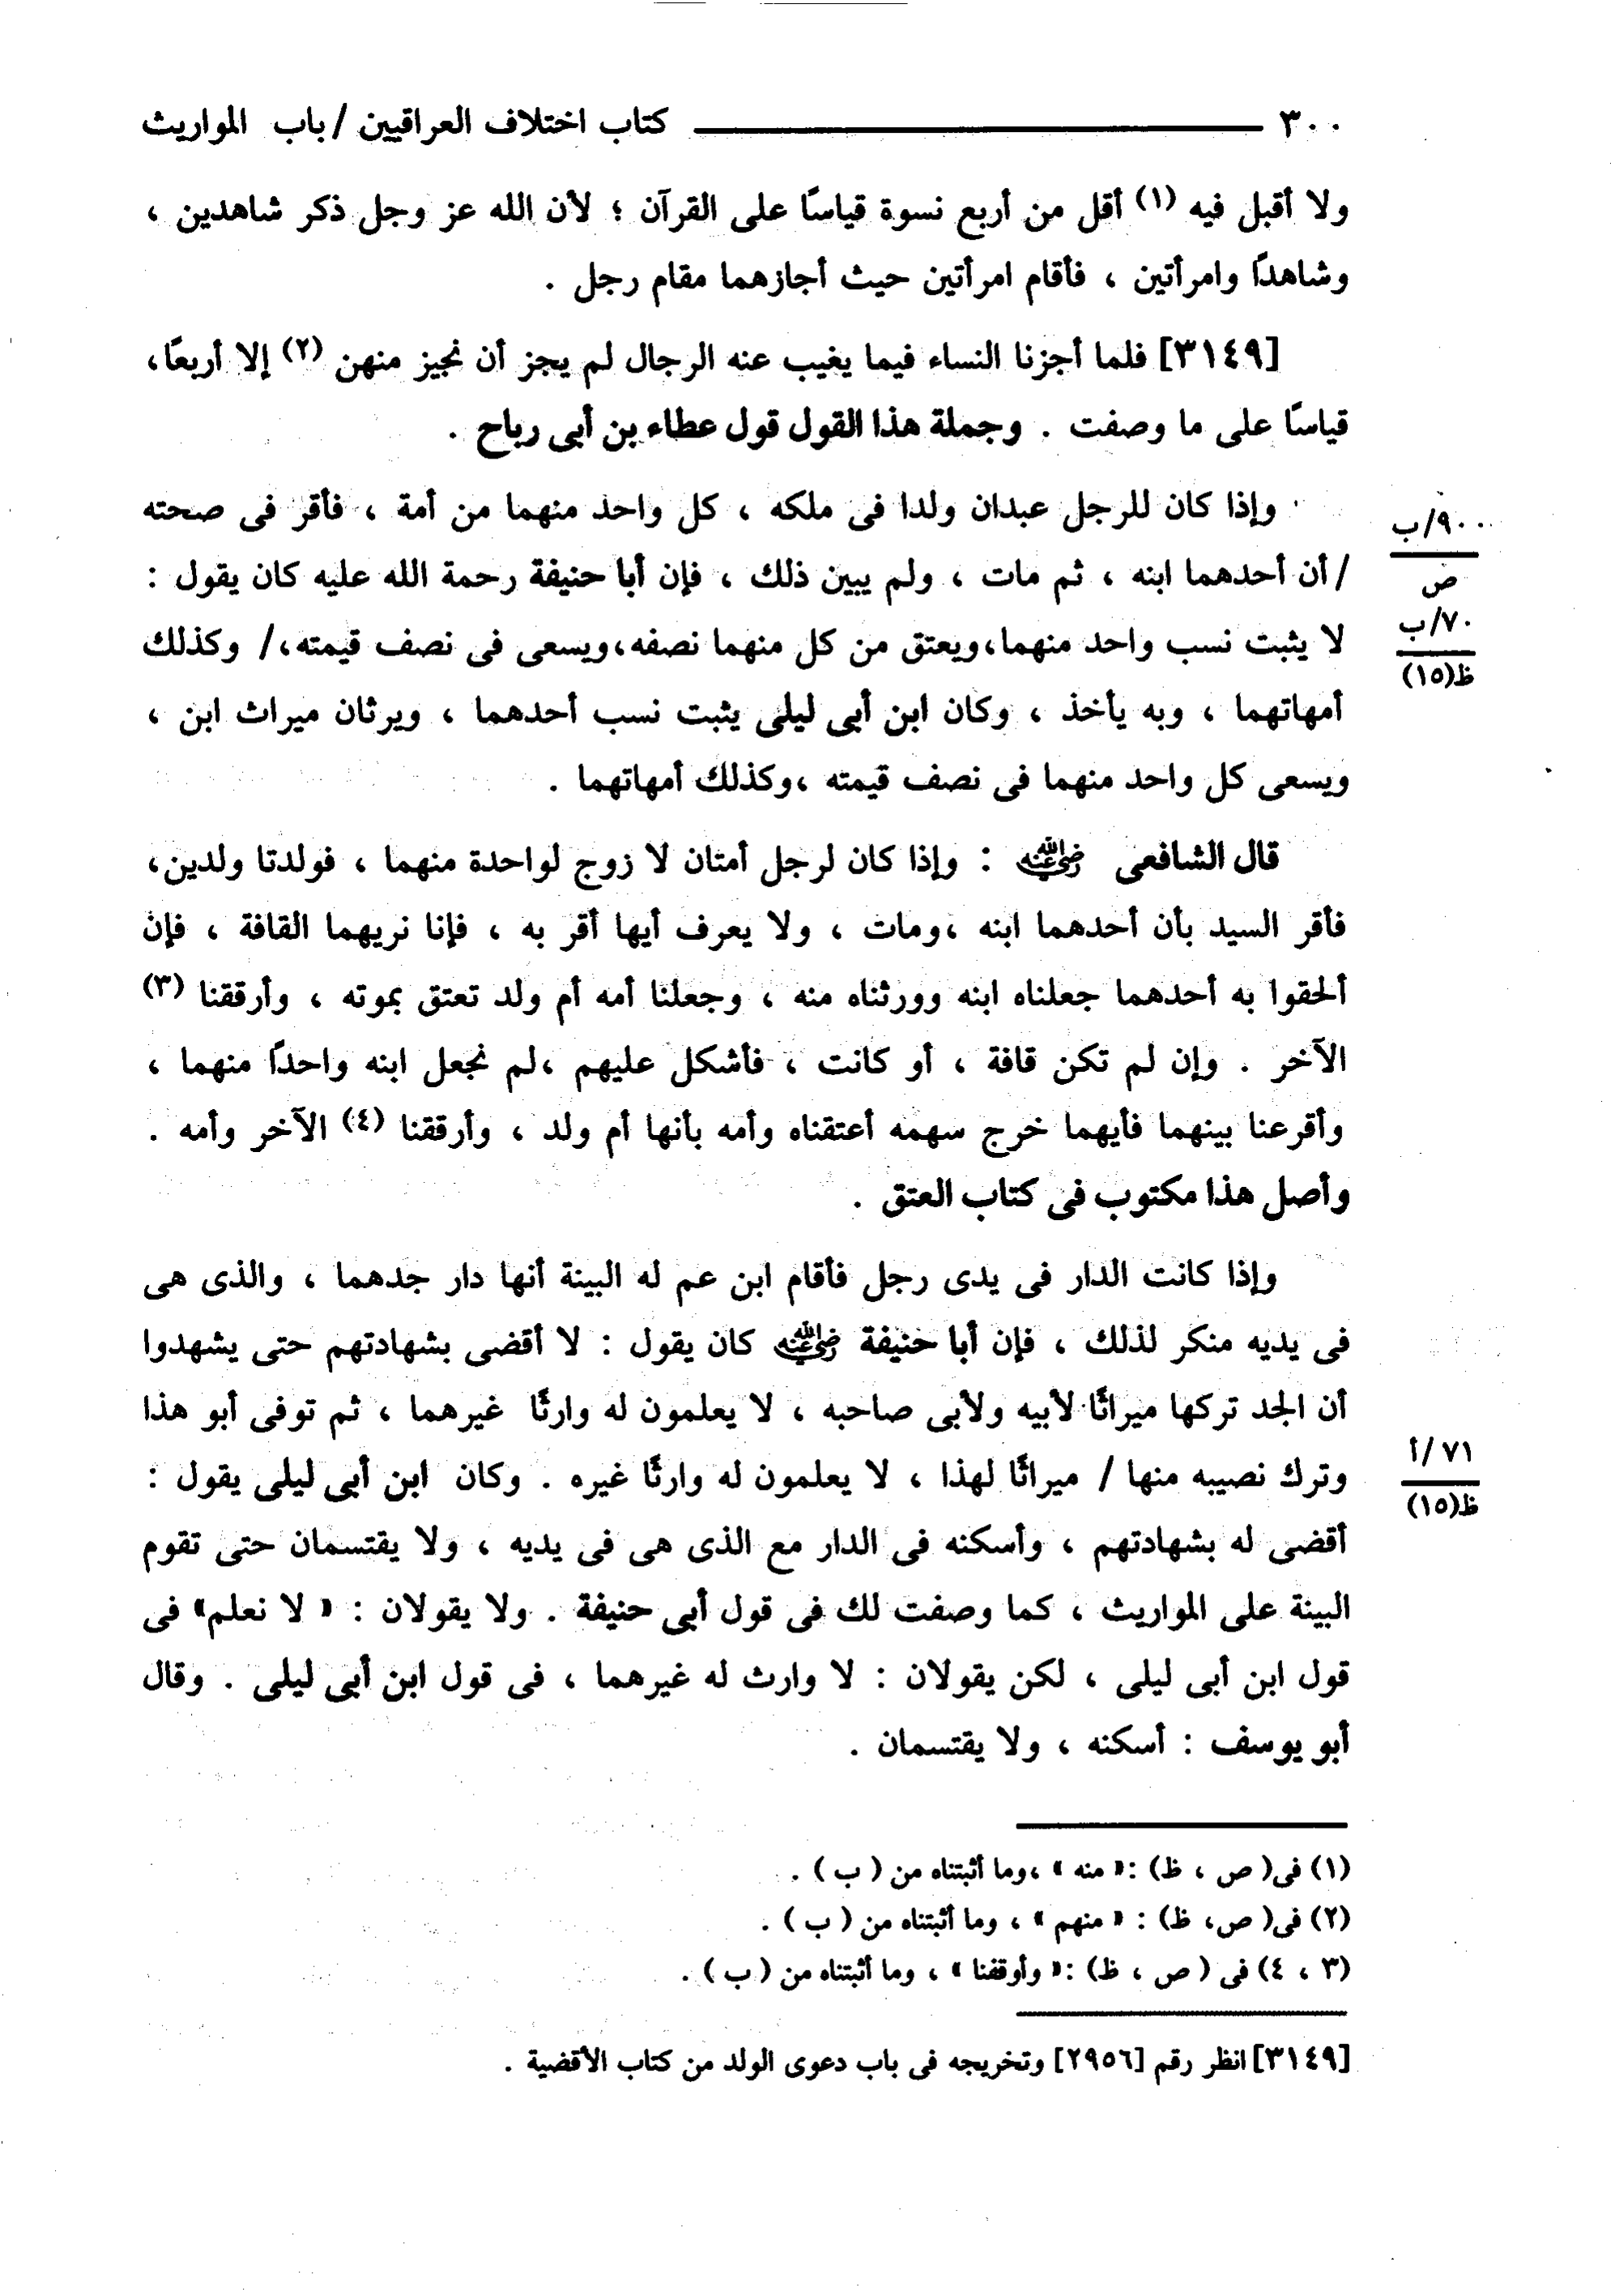 ٣٠٠ كتاب اختلاف العراقيين / باب المواريث
ولا أقبل فيه (١) أقل من أربع نسوة قياسًا على القرآن ؛ لأن الله عز وجل ذكر شاهدين ،
وشاهدًا وامرأتين ، فأقام امرأتين حيث أجازهما مقام رجل .
[٣١٤٩] فلما أجزنا النساء فيما يغيب عنه الرجال لم يجز أن نجيز منهن (٢) إلا أربعًا،
قياسًا على ما وصفت . وجملة هذا القول قول عطاء بن أبى رباح .
وإذا كان للرجل عبدان ولدا فى ملكه ، كل واحد منهما من أمة ، فأقر فى صحته
٩٠٠/ب
ص
/ أن أحدهما ابنه ، ثم مات ، ولم يبين ذلك ، فإن أبا حنيفة رحمة الله عليه كان يقول :
لا يثبت نسب واحد منهما،ويعتق من كل منهما نصفه،ويسعى فى نصف قيمته،/ وكذلك
٧٠/ب
ظ(١٥)
أمهاتهما ، وبه يأخذ ، وكان ابن أبى ليلى يثبت نسب أحدهما ، ويرثان ميراث ابن ،
ويسعى كل واحد منهما فى نصف قيمته ،وكذلك أمهاتهما .
قال الشافعى رضي الله عنه : وإذا كان لرجل أمتان لا زوج لواحدة منهما ، فولدتا ولدين،
فأقر السيد بأن أحدهما ابنه ،ومات ، ولا يعرف أيها أقر به ، فإنا نريهما القافة ، فإن
ألحقوا به أحدهما جعلناه ابنه وورثناه منه ، وجعلنا أمه أم ولد تعتق بموته ، وأرققنا (٣)
الآخر . وإن لم تكن قافة ، أو كانت ، فأشكل عليهم ،لم نجعل ابنه واحدًا منهما ،
وأقرعنا بينهما فأيهما خرج سهمه أعتقناه وأمه بأنها أم ولد ، وأرققنا (٤) الآخر وأمه .
وأصل هذا مكتوب فى كتاب العتق .
وإذا كانت الدار فى يدى رجل فأقام ابن عم له البينة أنها دار جدهما ، والذى هى
فى يديه منكر لذلك ، فإن أبا حنيفة رضي الله عنه كان يقول : لا أقضى بشهادتهم حتى يشهدوا
أن الجد تركها ميراثًا لأبيه ولأبى صاحبه ، لا يعلمون له وارثًا غيرهما ، ثم توفى أبو هذا
وترك نصيبه منها / ميراثًا لهذا ، لا يعلمون له وارثًا غيره . وكان ابن أبى ليلى يقول :
٧١/أ
ظ(١٥)
أقضى له بشهادتهم ، وأسكنه فى الدار مع الذى هى فى يديه ، ولا يقتسمان حتى تقوم
البينة على المواريث ، كما وصفت لك فى قول أبى حنيفة . ولا يقولان : « لا نعلم» فى
قول ابن أبى ليلى ، لكن يقولان : لا وارث له غيرهما ، فى قول ابن أبى ليلى . وقال
أبو يوسف : أسكنه ، ولا يقتسمان .
(١) فى( ص ، ظ) :« منه » ،وما أثبتناه من ( ب ) .
(٢) فى( ص، ظ) : « منهم » ، وما أثبتناه من ( ب ) .
(٣ ، ٤) فى ( ص ، ظ) :« وأوقفنا » ، وما أثبتناه من ( ب ) .
[٣١٤٩] انظر رقم [٢٩٥٦] وتخريجه فى باب دعوى الولد من كتاب الأقضية .